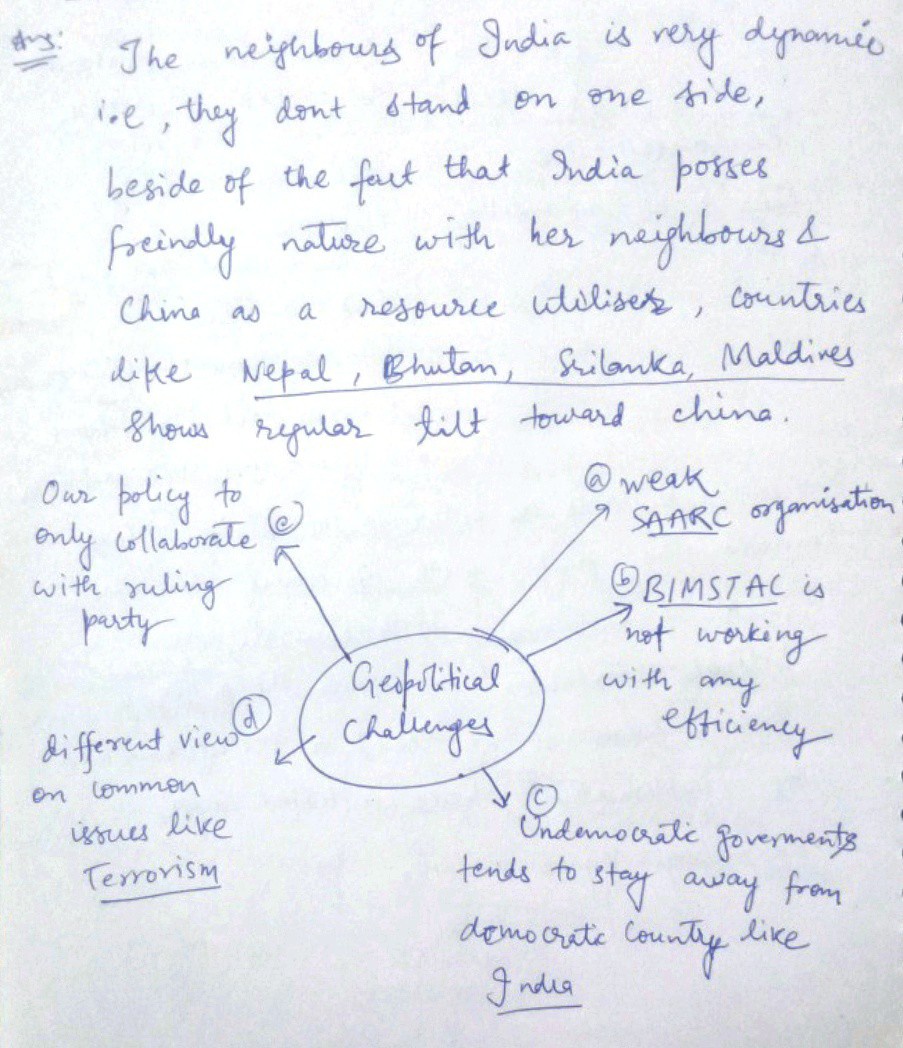 Ans:
The neighbours of India is very dynamic
i.e, they dont stand on one side,
beside of the fact that India posses
freindly nature with her neighbours &
China as a resource utiliser, countries
like Nepal, Bhutan, Srilanka, Maldives
Shows regular tilt toward china.
Our policy to
only collaborate (e)
with ruling
party
(a) weak
SAARC organisation
(b) BIMSTAC is
not working
with any
efficiency
Geopolitical
Challenges
different view (d)
on common
issues like
Terrorism
(c)
Undemocratic goverments
tends to stay away from
democratic Country like
India